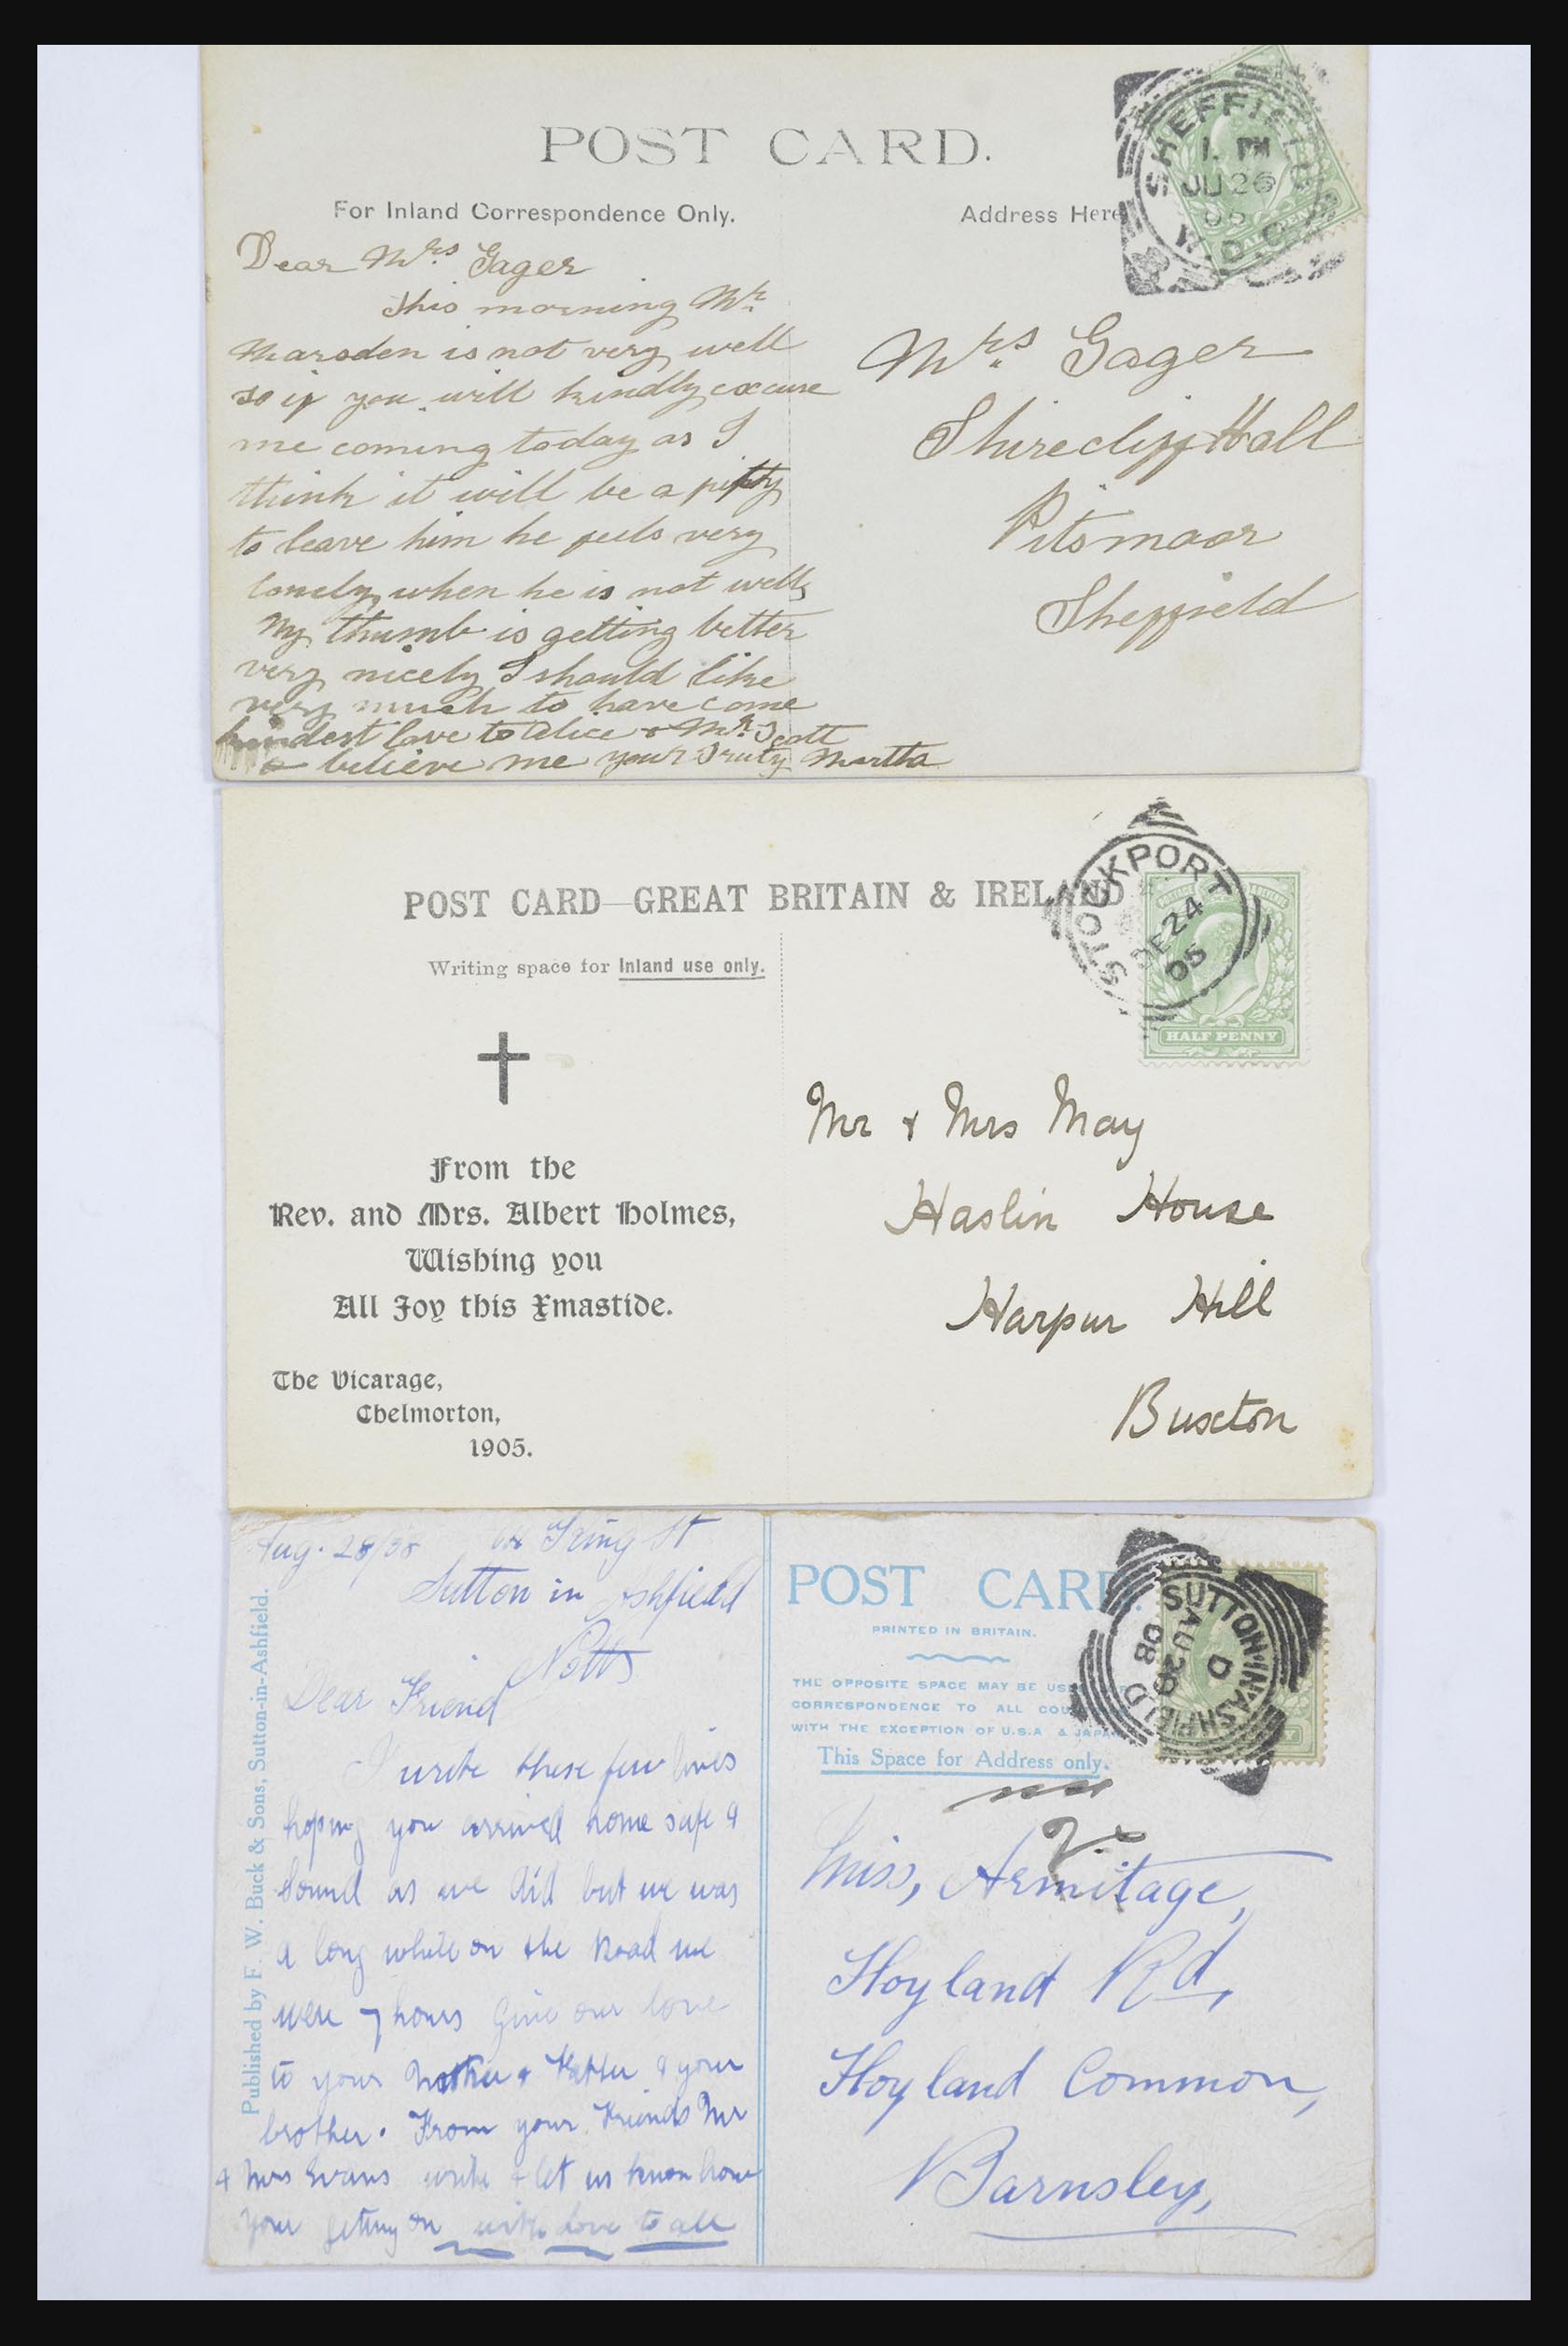 POST CARD.
For Inland Correspondence Only.
Address Here
SHEFFIELD
1. PM
JU 26
05
HALF PENNY
Dear Mrs Gager
This morning Mr
Marsden is not very well
so if you will kindly excuse
me coming today as I
think it will be a pitty
to leave him he feels very
lonely when he is not well
My thumb is getting better
very nicely I should like
very much to have come
kindest love to Alice & Mr Scott
& believe me your Truly Martha
Mrs Gager
Shirecliff Hall
Pitsmoor
Sheffield
POST CARD—GREAT BRITAIN & IRELAND
Writing space for Inland use only.
STOCKPORT
DE 24
05
HALF PENNY
From the
Rev. and Mrs. Albert Holmes,
Wishing you
All Joy this Xmastide.
The Vicarage,
Chelmorton,
1905.
Mr & Mrs May
Haslin House
Harpur Hill
Buxton
Aug. 28/08
Tring St
Sutton in Ashfield
Notts
Dear Friend
I write these few lines
hoping you arrived home safe &
sound as we did but we was
a long while on the Road we
were 7 hours give our love
to your Mother & Father & your
brother. From your Friends Mr
& Mrs Evans write & let us know how
your geting on with love to all
Published by F. W. Buck & Sons, Sutton-in-Ashfield.
POST CARD.
PRINTED IN BRITAIN.
THE OPPOSITE SPACE MAY BE USED
CORRESPONDENCE TO ALL
WITH THE EXCEPTION OF U.S.A. & JAPAN
This Space for Address only.
SUTTON-IN-ASHFIELD
D
AU 28
08
Miss, Armitage,
Hoyland Rd,
Hoyland Common,
Barnsley,